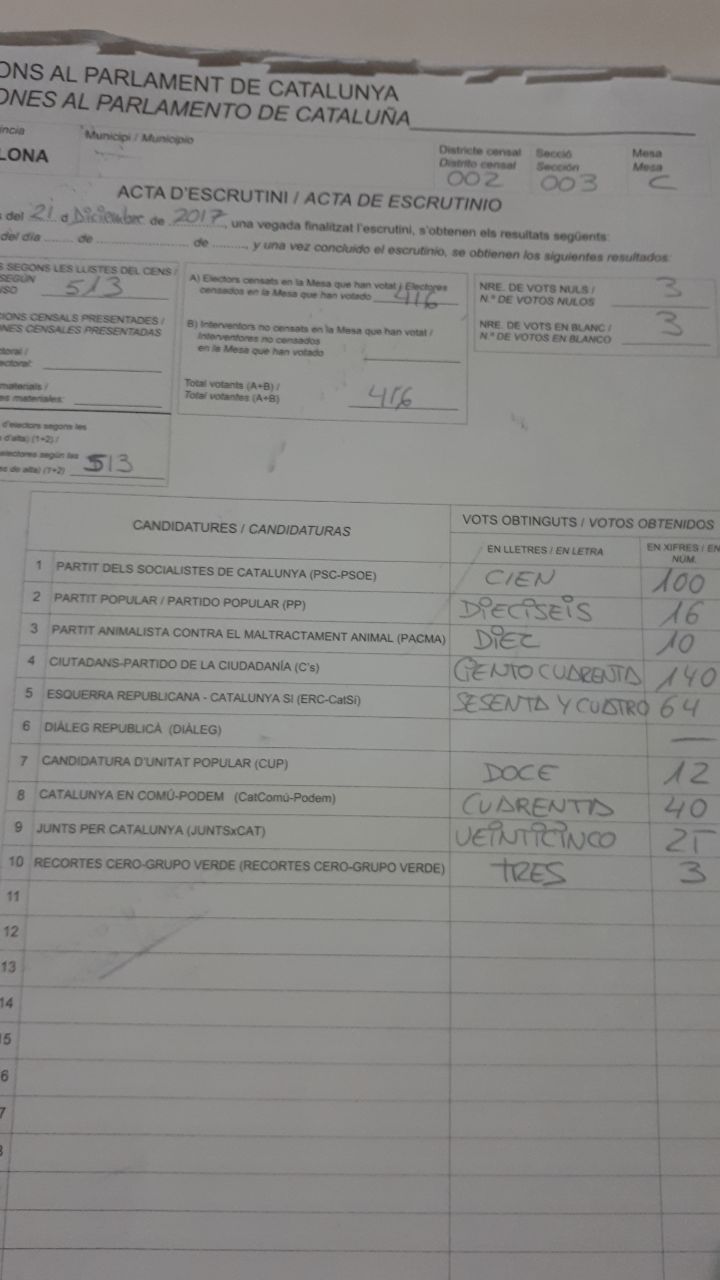 ONS AL PARLAMENT DE CATALUNYA
ONES AL PARLAMENTO DE CATALUÑA
incia Municipi / Municipio Districte censal Secció Mesa
LONA Distrito censal Sección Mesa
002 003 C
ACTA D'ESCRUTINI / ACTA DE ESCRUTINIO
del 21 d Diciembre de 2017, una vegada finalitzat l'escrutini, s'obtenen els resultats següents:
del día ........ de ........................ de ........., y una vez concluido el escrutinio, se obtienen los siguientes resultados:
S SEGONS LES LLISTES DEL CENS /
SEGÚN
NSO 513
IONS CENSALS PRESENTADES /
NES CENSALES PRESENTADAS
toral /
ectoral:
materials /
es materiales:
d'electors segons les
d'alta) (1+2) /
electores según las
es de alta) (1+2) 513
A) Electors censats en la Mesa que han votat / Electores
censados en la Mesa que han votado 416
B) Interventors no censats en la Mesa que han votat /
Interventores no censados
en la Mesa que han votado
Total votants (A+B) /
Total votantes (A+B) 416
NRE. DE VOTS NULS /
N.º DE VOTOS NULOS 3
NRE. DE VOTS EN BLANC /
N.º DE VOTOS EN BLANCO 3
CANDIDATURES / CANDIDATURAS VOTS OBTINGUTS / VOTOS OBTENIDOS
EN LLETRES / EN LETRA EN XIFRES / EN
NÚM.
1 PARTIT DELS SOCIALISTES DE CATALUNYA (PSC-PSOE) CIEN 100
2 PARTIT POPULAR / PARTIDO POPULAR (PP) DIECISEIS 16
3 PARTIT ANIMALISTA CONTRA EL MALTRACTAMENT ANIMAL (PACMA) DIEZ 10
4 CIUTADANS-PARTIDO DE LA CIUDADANÍA (C's) CIENTO CUARENTA 140
5 ESQUERRA REPUBLICANA - CATALUNYA SI (ERC-CatSí) SESENTA Y CUATRO 64
6 DIÀLEG REPUBLICÀ (DIÀLEG) —
7 CANDIDATURA D'UNITAT POPULAR (CUP) DOCE 12
8 CATALUNYA EN COMÚ-PODEM (CatComú-Podem) CUARENTA 40
9 JUNTS PER CATALUNYA (JUNTSxCAT) VEINTICINCO 25
10 RECORTES CERO-GRUPO VERDE (RECORTES CERO-GRUPO VERDE) TRES 3
11
12
13
14
5
6
7
8